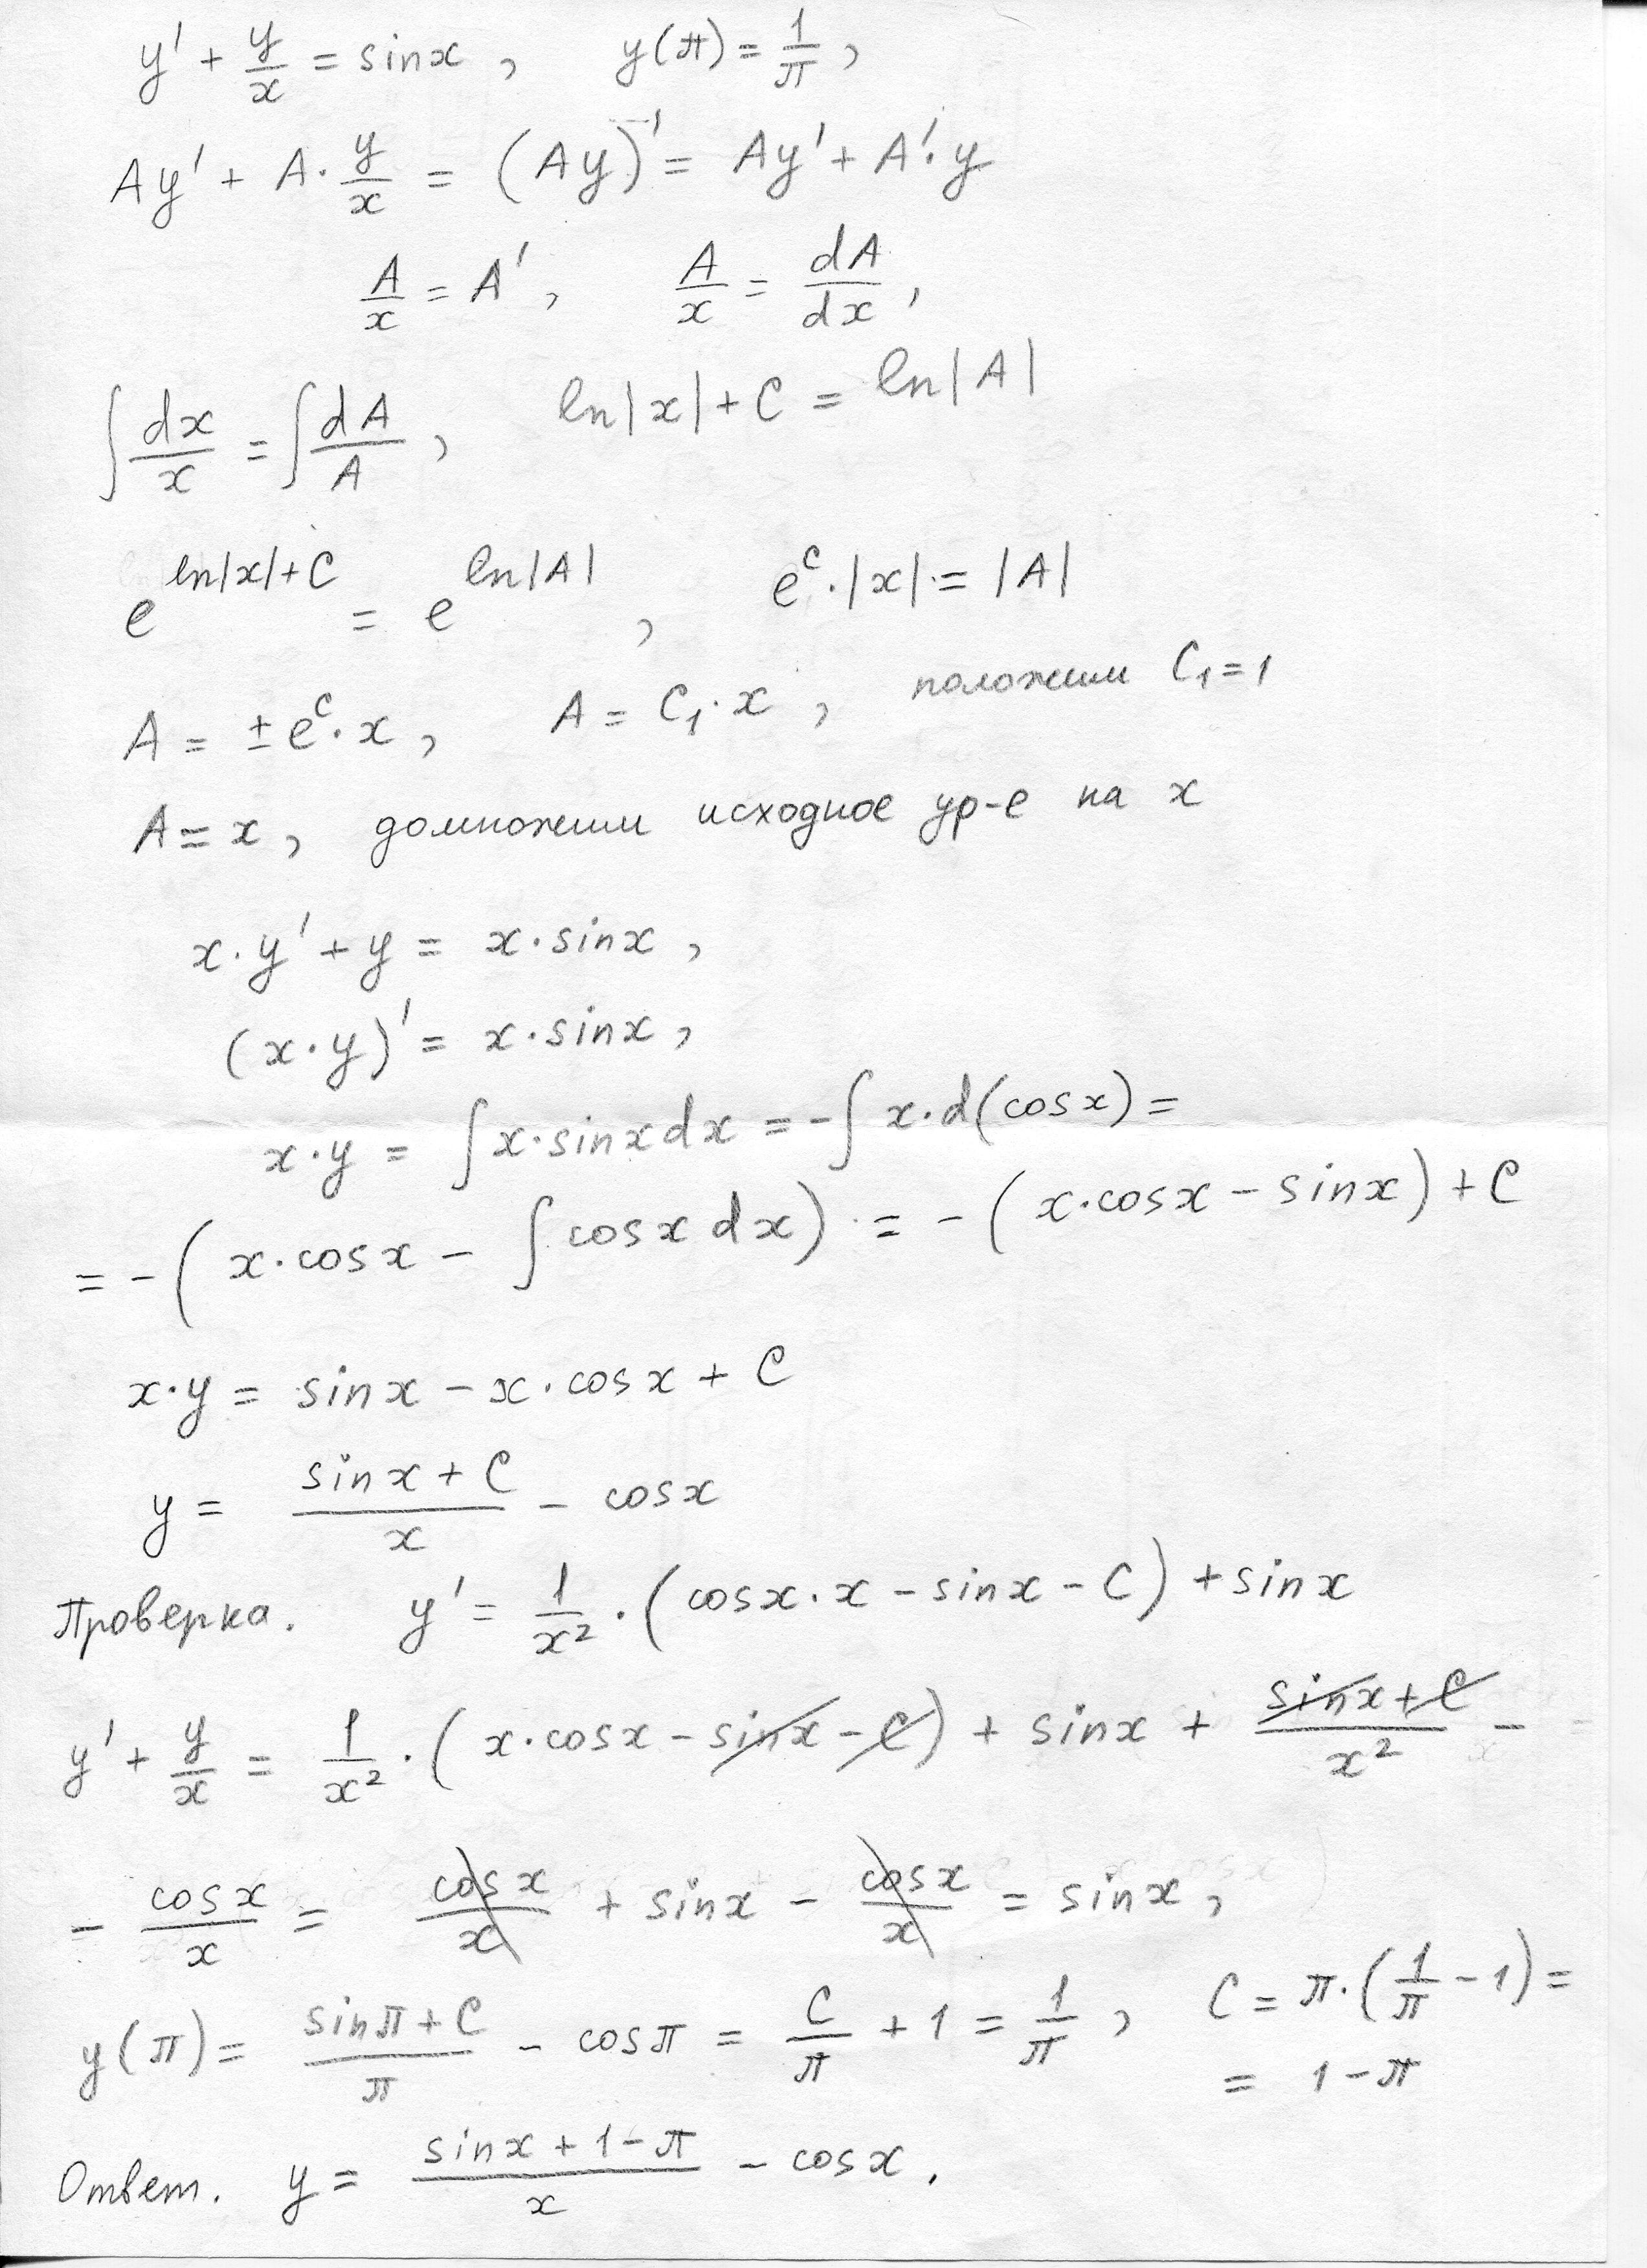 y' + y/x = sinx, y(π) = 1/π,
Ay' + A · y/x = (Ay)' = Ay' + A' · y
A/x = A', A/x = dA/dx,
∫ dx/x = ∫ dA/A, ln|x| + C = ln|A|
e^(ln|x|+C) = e^(ln|A|), e^C · |x| = |A|
A = ± e^C · x, A = C₁ · x, положим C₁ = 1
A = x, домножим исходное ур-е на x
x · y' + y = x · sinx,
(x · y)' = x · sinx,
x · y = ∫ x · sinx dx = - ∫ x · d(cosx) =
= - (x · cosx - ∫ cosx dx) = - (x · cosx - sinx) + C
x · y = sinx - x · cosx + C
y = (sinx + C)/x - cosx
Проверка. y' = 1/x² · (cosx · x - sinx - C) + sinx
y' + y/x = 1/x² · (x · cosx - sinx - C) + sinx + (sinx + C)/x² -
- cosx/x = cosx/x + sinx - cosx/x = sinx,
y(π) = (sinπ + C)/π - cosπ = C/π + 1 = 1/π, C = π · (1/π - 1) =
= 1 - π
Ответ. y = (sinx + 1 - π)/x - cosx.